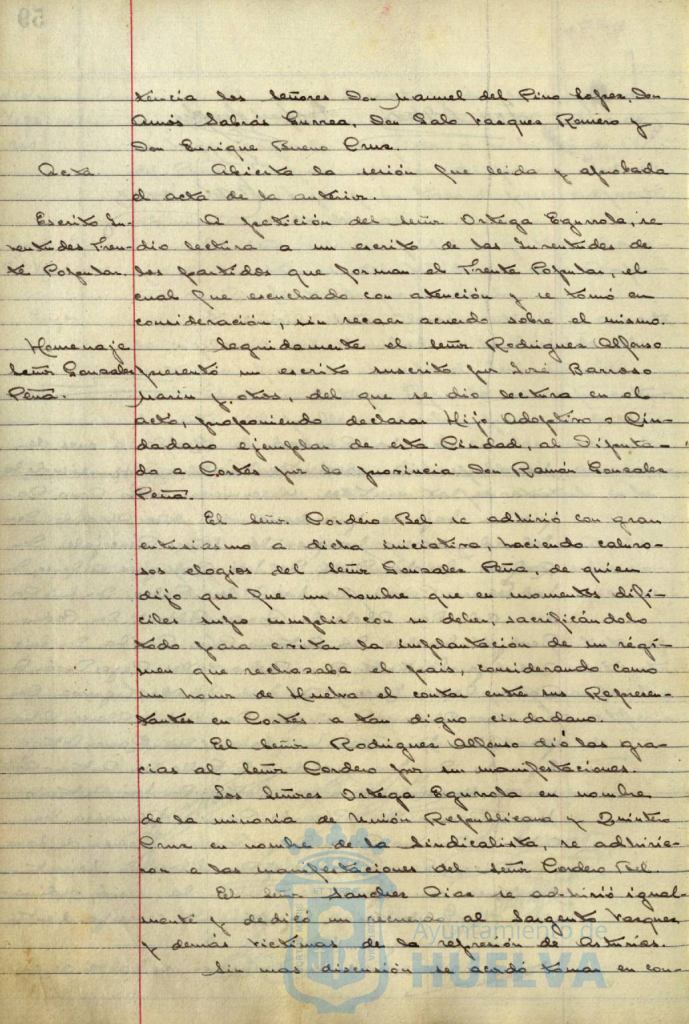 59
tencia los Señores Don Manuel del Pino Lopez, Don
Amós Sabrás Gurrea, Don Galo Vazquez Romero y
Don Enrique Bueno Cruz.
Acta. Abierta la sesión fué leida y aprobada
el acta de la anterior.
Escrito Ju- A petición del Señor Ortega Egurrola, se
ventudes Fren- dio lectura a un escrito de las Juventudes de
te Popular. los partidos que forman el Frente Popular, el
cual fue escuchado con atención y se tomó en
consideración, sin recaer acuerdo sobre el mismo.
Homenaje Seguidamente el Señor Rodriguez Alfonso
Señor Gonzalez presentó un escrito suscrito por José Barroso
Peña. Marin y otros, del que se dio lectura en el
acto, proponiendo declarar Hijo Adoptivo o Ciu-
dadano ejemplar de esta Ciudad, al Diputa-
do a Cortés por la provincia Don Ramón Gonzalez
Peña.
El Señor Cordero Bel se adhirió con gran
entusiasmo a dicha iniciativa, haciendo caluro-
sos elogios del Señor Gonzalez Peña, de quien
dijo que fue un hombre que en momentos difí-
ciles supo cumplir con su deber, sacrificándolo
todo para evitar la implantación de un régi-
men que rechazaba el pais, considerando como
un honor de Huelva el contar entre sus Represen-
tantes en Cortés a tan digno ciudadano.
El Señor Rodriguez Alfonso dió las gra-
cias al Señor Cordero por sus manifestaciones.
Los Señores Ortega Egurrola en nombre
de la minoria de Unión Republicana y Quintero
Cruz en nombre de la Sindicalista, se adhirie-
ron a las manifestaciones del Señor Cordero Bel.
El Señor Sanchez Diaz se adhirió igual-
mente y dedicó un recuerdo al Sargento Vazquez
y demás victimas de la represión de Asturias.
Sin mas discusión se acordó tomar en con-
Ayuntamiento de
HUELVA